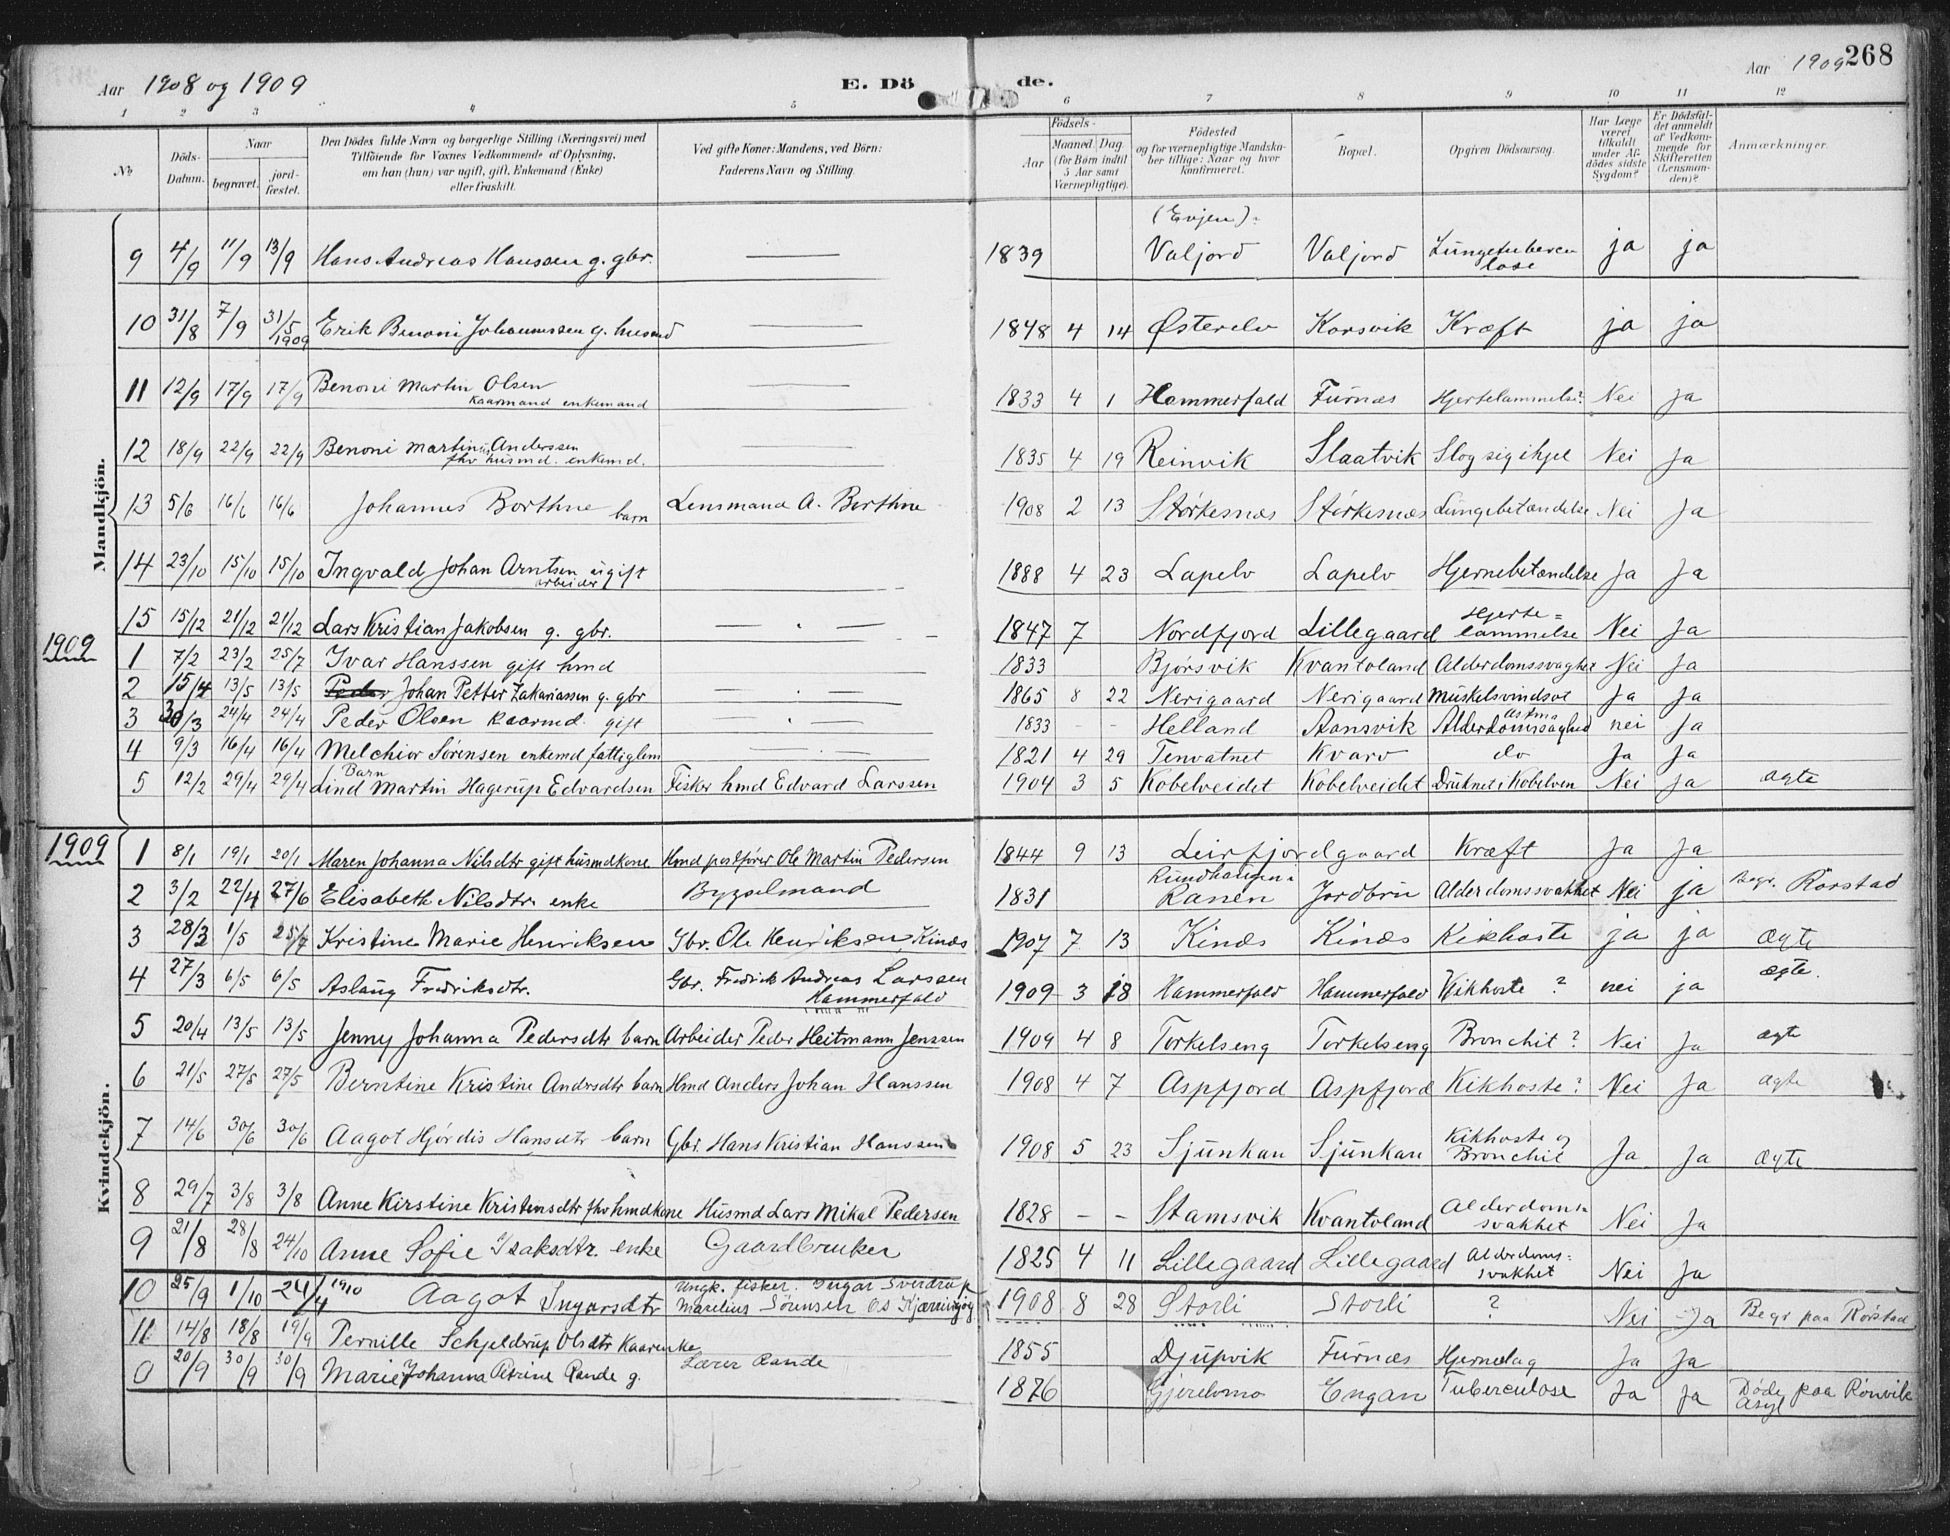 Aar 1908 og 1909 E. Dö de. Aar 1909 268
1 2 3 4 5 6 7 8 9 10 11 12
No Döds-Datum. Naar begravet. jord-fæstet. Den Dödes fulde Navn og borgerlige Stilling (Næringsvei) med Tilföiende for Voxnes Vedkommende af Oplysning, om han (hun) var ugift, gift, Enkemand (Enke) eller fraskilt. Ved gifte Koner: Mandens, ved Börn: Faderens Navn og Stilling. Födsels- Aar Maaned. Dag (for Börn indtil 5 Aar samt Værnepligtige). Födested og for værnepligtige Mandskaber tillige: Naar og hvor konfirmeret. Bopæl. Opgiven Dödsaarsag. Har Læge været tilkaldt under Afdödes sidste Sygdom? Er Dödsfaldet anmeldt af Vedkommende for Skifteretten (Lensmanden)? Anmærkninger.
Mandkjön.
9 4/9 11/9 13/9 Hans Andreas Hanssen g. gbr. 1839 (Evjen) Valjord Valjord Lungetuberculose ja ja
10 31/8 7/9 31/5 1909 Erik Benoni Johannssen g. husmd 1848 4 14 Østerelv Korsvik Kræft ja ja
11 12/9 17/9 17/9 Benoni Martin Olsen kaarmand enkemand 1833 4 1 Hammerfald Furnæs Hjertelammelse? Nei Ja
12 18/9 22/9 22/9 Benoni Martinus Anderssen fhv husmd. enkemd. 1835 4 19 Reinvik Slaatvik Slog sig ihjel Nei Ja
13 5/6 16/6 16/6 Johannes Borthne barn Lensmand A. Borthne 1908 2 13 Størkesnæs Størkesnæs Lungebetændelse Nei Ja
14 23/10 15/10 15/10 Ingvald Johan Arntsen ugift arbeider 1888 4 23 Lapelv Lapelv Hjernebetændelse Ja Ja
15 15/12 21/12 21/12 Lars Kristian Jakobsen g. gbr. 1847 7 Nordfjord Lillegaard Hjerte=lammelse Nei Ja
1909
1 7/2 23/2 25/7 Ivar Hanssen gift hmd 1833 Bjørsvik Kvantoland Alderdomssvaghet Nei Ja
2 15/4 13/5 13/5 Peder Johan Petter Zakariassen g. gbr 1865 8 22 Nerigaard Nerigaard Muskelsvindsot Ja Ja
3 30/3 24/4 24/4 Peder Olsen kaarmd. gift 1833 - - Helland Aansvik Astma Alderdomssvaghed nei Ja
4 9/3 16/4 16/4 Melchior Sørensen enkemd fattiglem 1821 4 29 Tenvatnet Kvarv do Ja Ja
5 12/2 29/4 29/4 Barn Lind Martin Hagerup Edvardsen Fisker hmd Edvard Larssen 1904 3 5 Kobelveidet Kobelveidet Druknet i Kobelven Nei Ja ægte
1909
Kvindekjön.
1 8/1 19/1 20/1 Maren Johanna Nilsdtr gift husmdkone Hmd postfører Ole Martin Pedersen 1844 9 13 Leirfjordgaard Kræft Ja Ja
2 3/2 22/4 27/6 Elisabeth Nilsdtr. enke Bygselmand 1831 Rundhaugen Ranen Jordbru Alderdomssvakhet Nei ja Begr. Rørstad
3 28/3 1/5 25/7 Kristine Marie Henriksen Gbr. Ole Henriksen, Kinæs 1907 7 13 Kinæs Kinæs Kikhoste ja ja ægte
4 27/3 6/5 6/5 Aslaug Fredriksdtr. Gbr. Fredrik Andreas Larssen Hammerfald 1909 3 18 Hammerfald Hammerfald Kikhoste ? nei ja ægte.
5 20/4 13/5 13/5 Jenny Johanna Pedersdtr barn Arbeider Peder Heitmann Jenssen 1909 4 8 Torkelseng Torkelseng Bronchit? Nei Ja ægte
6 21/5 27/5 27/5 Berntine Kristine Andrsdtr barn Hmd Anders Johan Hanssen 1908 4 7 Aspfjord Aspfjord Kikhoste? Nei Ja ægte
7 14/6 30/6 30/6 Aagot Hjørdis Hansdtr barn Gbr. Hans Kristian Hanssen 1908 5 23 Sjunkan Sjunkan Kikhoste og Bronchit Ja Ja ægte
8 29/7 3/8 3/8 Anne Kirstine Kristensdtr fhv hmdkone Husmd Lars Mikal Pedersen 1828 - - Stamsvik Kvantoland Alderdomssvakhet Nei Ja
9 21/8 28/8 24/10 Anne Sofie Isaksdtr. enke Gaardbruker 1825 4 11 Lillegaard Lillegaard Alderdoms=svakhet Nei Ja
10 25/9 1/10 24/4 1910 Aagot Ingarsdtr Ungk. fisker. Ingar Sverdrup Marelius Sørensen Os Kjærringøy 1908 8 28 Storli Storli ? Nei Ja Begr paa Rørstad
11 14/8 18/8 19/9 Pernille Schjeldrup Olsdtr Kaarenke 1855 Djupvik Furnæs Hjerneslag Ja Ja
0 20/9 30/9 30/9 Marie Johanna Petrine Rande g. Lærer Rande 1876 Engan Tuberculose Ja Ja Døde paa Rønvik Asyl